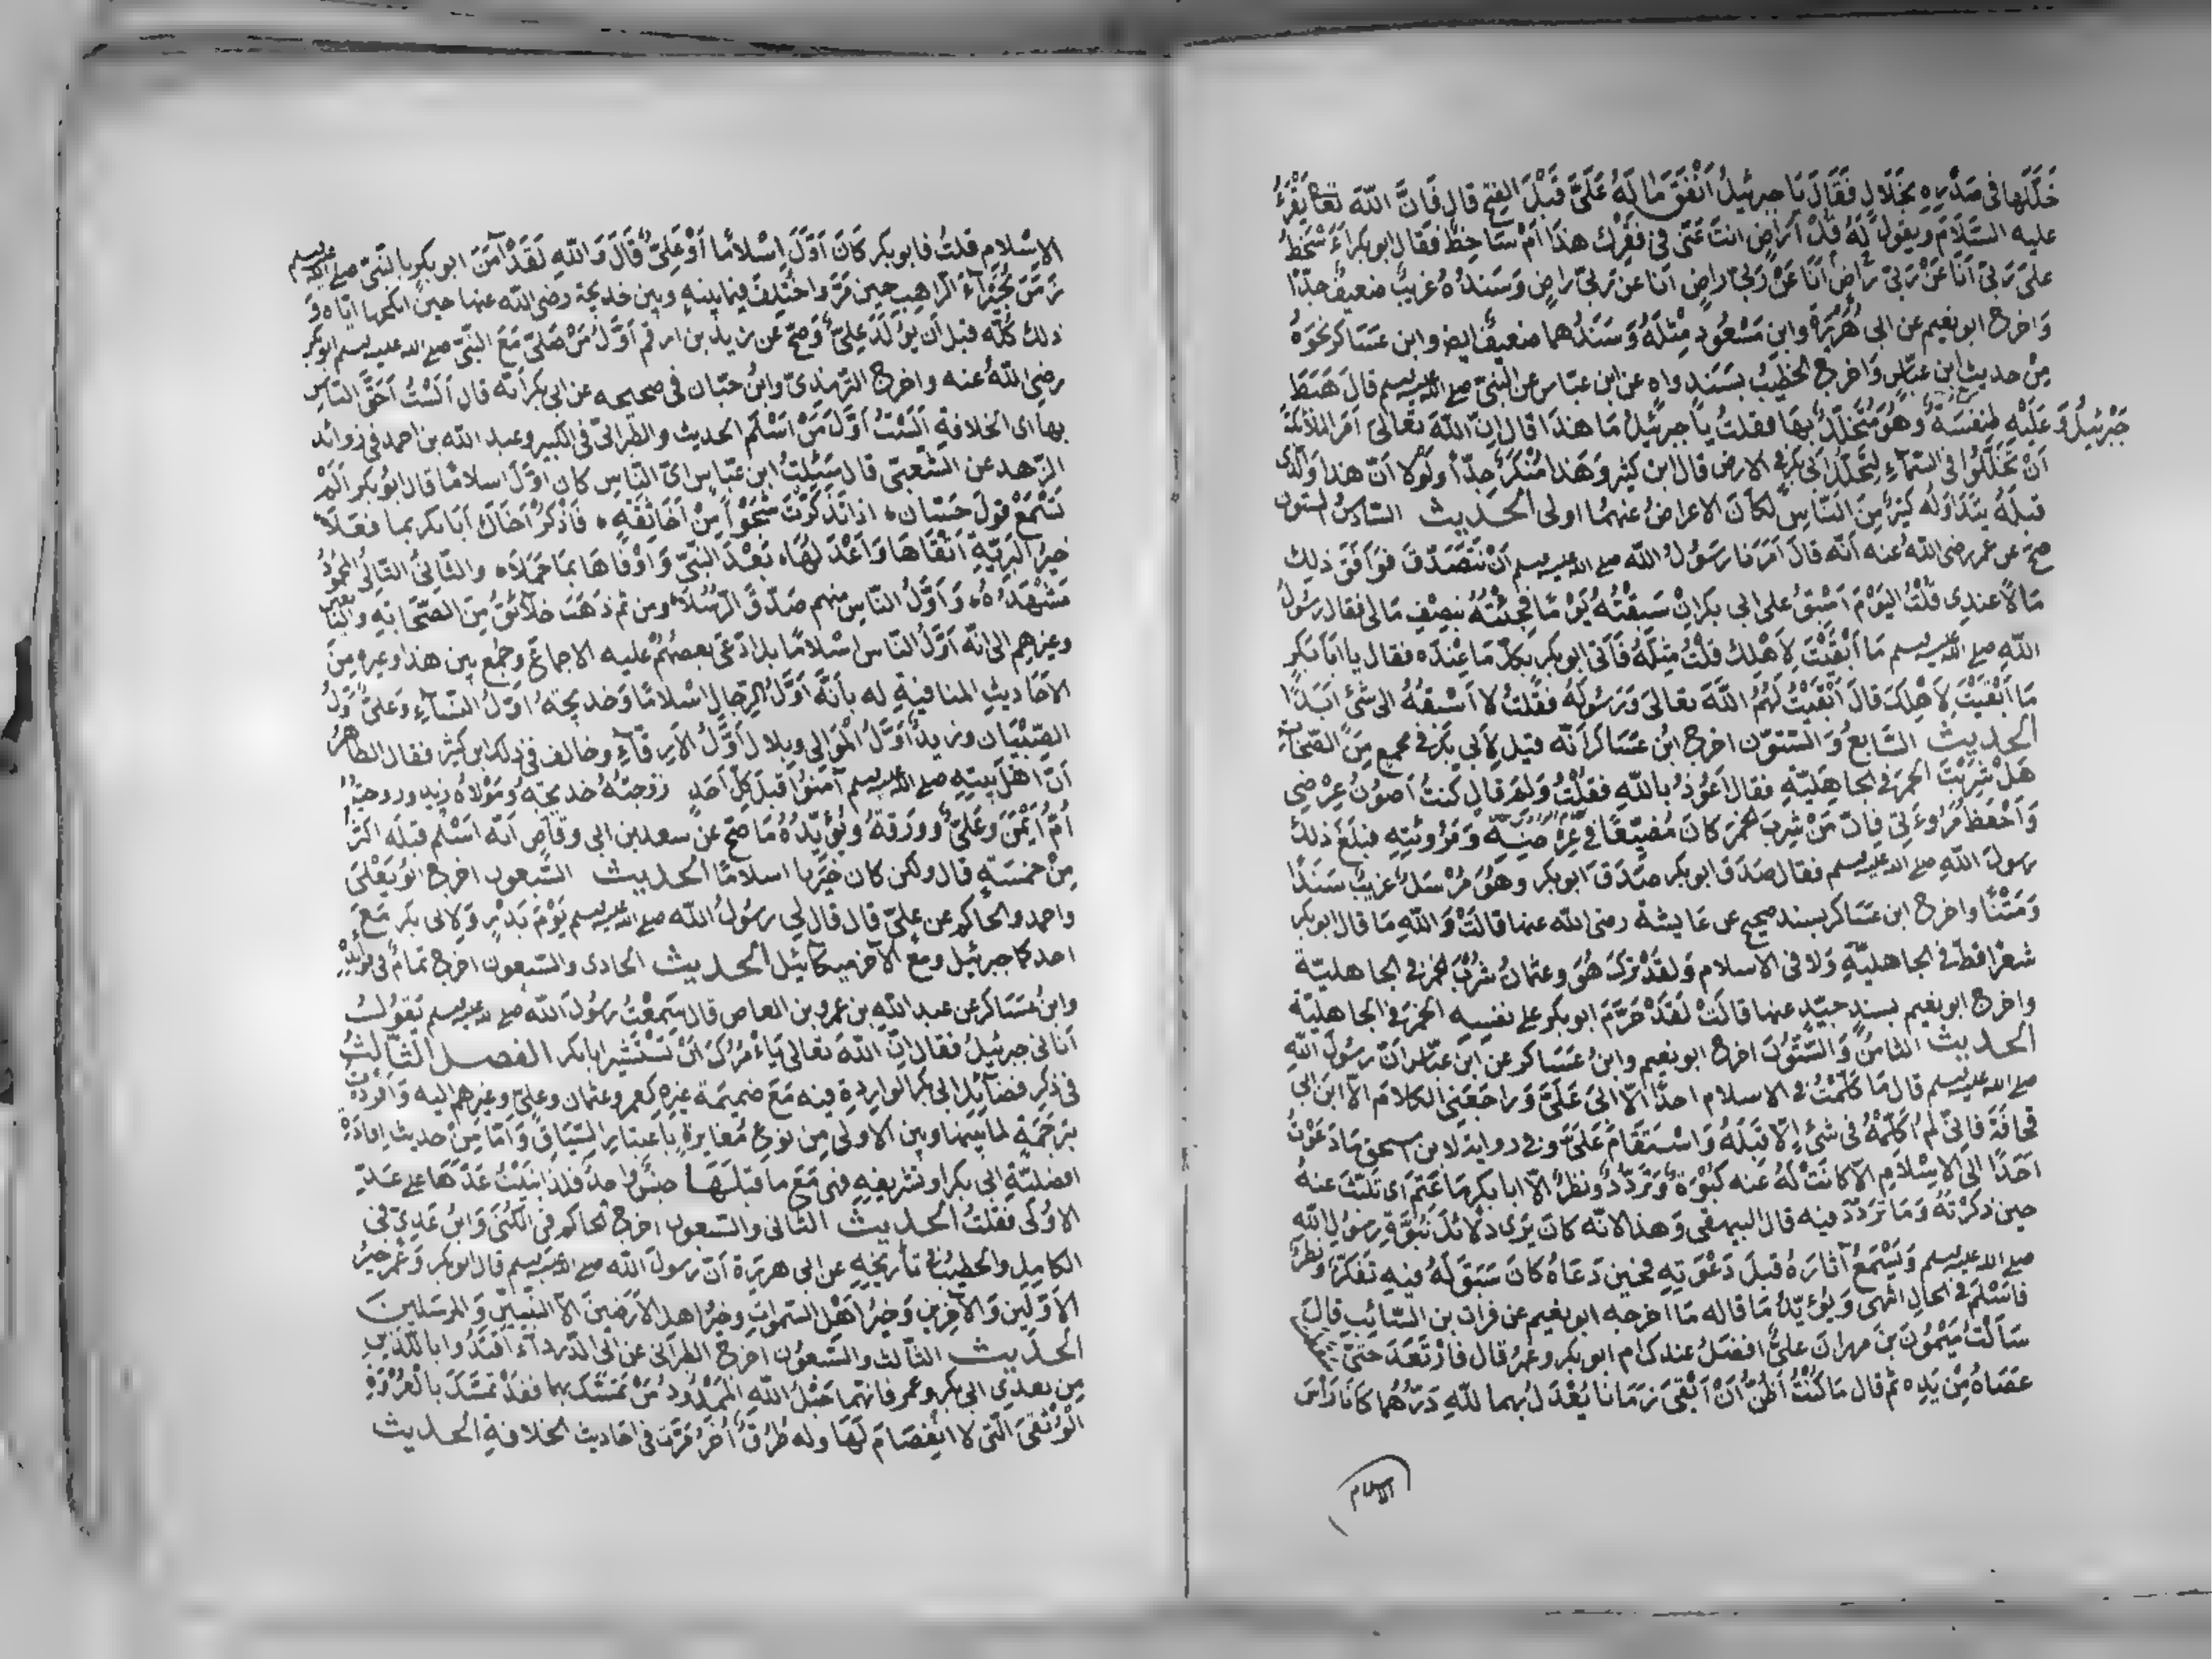 خَلَّلَها في صَدْرِه بِخَلَالٍ فَقَالَ يَا جبرئيلُ اَنْفَقَ مَالَهُ عَلَيَّ قَبْلَ الفتح قال فَاِنَّ اللّهَ تعا يَقْرَءُ
عليه السَّلَامَ وَيقولُ لَهُ قُلْ اَرَاضٍ انتَ عَنّي في فَقْرِكَ هذا اَمْ سَاخِطٌ فقال ابو بكر اَءَسْخَطُ
على رَبّي اَنَا عَنْ رَبّي رَاضٍ اَنَا عَنْ رَبّي راضٍ اَنَا عن رَبّي رَاضٍ وَسَنَدُهُ غريبٌ ضعيفٌ جدّا
وَاخرج ابو نعيم عن ابي هُرَيْرَةَ وابنِ مَسْعُودٍ مِثْلَهُ وَسَنَدُهما ضعيفٌ ايض وابن عسَاكر نحوَهُ
مِنْ حديثِ ابن عبّاس وَاخرج الخطيبُ بسَنَدٍ واهٍ عن ابن عبّاس عن النبيّ صلى الله عليه وسلم قالَ هَبَطَ
جَبْرَئيلُ وَعَلَيْهِ طِنفسَةٌ وَهُوَ مُتَخَلِّلٌ بهَا فقلتُ يا جبرئيلُ مَا هذَا قال اِنّ اللّهَ تعَالى اَمَرَ الملائكةَ
اَنْ تَخَلَّلُوا في السّمآءِ لِتَخَلُّلِ اَبي بكر في الارض قال ابن كثير وَهَذا مُنْكَرٌ جدّاً وَلَولا اَنّ هذا وَالّذى
قبلَهُ يتَدَاوَلُه كثيرٌ مِنَ النّاسِ لكانَ الاعراضُ عنهُما اولى الحَديث السّادس الستون
صحَّ عن عمر رضي اللّه عنه اَنّه قالَ اَمَرَنا رَسُولُ اللّه صلى الله عليه وسلم اَنْ نَتَصَدَّقَ فَوَافَقَ ذلِك
مَالاً عندِي قُلْتُ اليَوْمَ اَسْبِقُ على ابي بكر اِنْ سَبَقْتُهُ يَوْمًا فجِئْتُهُ بنِصْفِ مَالي فقال رَسُولُ
اللّهِ صلى الله عليه وسلم مَا اَبْقَيْتَ لِاَهْلك قلْتُ مِثلَهُ فَاَتى ابو بكر بكلّ مَا عِنْدَه فقال يا ابَا بَكر
مَا اَبْقَيْتَ لِاَهْلِكَ قالَ اَبْقَيْتُ لَهُمُ اللّهَ تعَالى وَرَسُولَهُ فقُلتُ لا اَسْبِقُهُ الى شَئ اَبَدًا
الحديث السّابعُ وَالستّون اخرج ابن عسَاكر اَنّه قيل لِاَبي بَكر في مجمعٍ مِنَ الصّحَابةِ
هَلْ شرِبْتَ الخمر في الجاهِليّةِ فقال اَعُوذُ باللّهِ فقُلْتُ وَلِمَ قال كنتُ اَصُونُ عِرْضِي
وَاَحْفَظُ مُرُوءَتي فانّ مَنْ شرِبَ الخمر كانَ مُضَيّعًا في عِرْضِه وَمُرُوئتِه فبلغَ ذلكَ
رسولَ اللّهِ صلى الله عليه وسلم فقال صَدَقَ ابو بكر صَدَقَ ابو بكر وهُوَ مُرْسَلٌ غريبٌ سَنَدًا
وَمَتْنًا وَاخرج ابن عسَاكر بسند صحيح عن عَايشة رضي اللّه عنها قالَتْ وَاللّهِ مَا قال ابو بكر
شعرًا قطّ في الجاهليّةِ وَلا في الاسلام وَلقَدْ تركَ هُوَ وعثمانُ شُرْبَ الخمر في الجاهليّة
واخرج ابو نعيم بسندٍ جيّدٍ عنها قالَتْ لَقَدْ حَرَّمَ ابو بكر على نفسِه الخمرَ في الجاهليّة
الحديث الثامنُ وَالسّتُّونَ اخرج ابو نعيم وابنُ عسَاكر عن ابن عبّاس انّ رسُولَ اللّهِ
صلى الله عليه وسلم قال مَا كَلّمْتُ في الاسلام احدًا الّا ابَى عَلَيَّ وَرَاجَعَني الكلامَ الّا ابنَ ابي
قحافَةَ فَاِنّي لم اُكَلِّمْهُ في شئٍ اِلّا قَبِلَهُ وَاسْتَقَامَ عَلَيْهِ وفي رواية لابن اسحق مَا دَعَوْتُ
اَحَدًا الى الاِسْلامِ الّا كانَتْ لَهُ عَنه كَبْوَةٌ وَتَرَدُّدٌ وَنظرٌ الّا ابا بكر مَا عَتَمَ اَى تَلَبّثَ عنهُ
حين ذكرْتُهُ وَمَا تردّدَ فيه قال البيهقي وَهذا لانّه كانَ يَرَى دلائلَ نُبُوَّةِ رسُولِ اللّهِ
صلى الله عليه وسلم وَيَسْمَعُ آثارَهُ قبلَ دَعْوَتِهِ فحين دَعَاهُ كانَ سَبَقَ لَهُ فيهِ تَفكّرٌ وَنظرٌ
فاَسْلَمَ في الحال انتهى وَيُؤيّدُ مَا قاله مَا اخرجه ابو نعيم عن فرات بن السّائب قال
سَاَلتُ مَيْمُونَ بنَ مهرانَ عليٌّ افضَلُ عندكَ ام ابو بكر وعمرُ قال فارْتَعَدَ حَتّى سقطت
عصَاهُ مِنْ يَدِه ثمّ قال مَا كُنْتُ اَظُنُّ اَنْ اَبْقى زمَانا يُعْدَلُ بهما للّهِ دَرّهُما كَانَا رَاْسَ
الاسلام
الاسْلام قلتُ فابو بكر كَانَ اَوَّلَ اِسْلامًا اَوْ عَلِيٌّ قَالَ وَاللّهِ لَقَدْ آمَنَ ابو بكر بالنّبيّ صلى الله عليه وسلم
زَمَنَ بُحَيْرَآءَ الرّاهِب حين مَرَّ وَاختُلِفَ فيما بينهِ وبين خديجة رضي اللّه عنها حينَ انكحها ايّاه وَ
ذلك كُلّه قبل اَن يُوْلَدَ عليٌّ وَصَحّ عن زيد بن ارقم اَوّلُ مَنْ صَلّى مَعَ النّبيّ صلى الله عليه وسلم ابو بكر
رضي اللّه عنه واخرج الترمذيّ وابنُ حبّان في صحيحه عن ابي بكر اَنّه قال اَلَسْتُ اَحَقَّ النّاسِ
بها اى الخلافةِ اَلَسْتُ اَوّلَ مَنْ اَسْلَم الحديث والطبرانيّ في الكبير وعبد اللّه بن احمد في زوائد
الزهد عن الشّعبيّ قال سَئلتُ ابن عبّاس اىّ النّاس كان اوّلَ اسلامًا قال ابو بكر اَلَمْ
تَسْمَعْ قولَ حَسّان ٥ اذا تَذكّرْتَ شجْواً مِنْ اَخَا ثِقَةٍ ٥ فَاذْكُرْ اَخَاكَ اَبَا بكر بما فعَلا
خيرُ البَرِيّةِ اَتْقاهَا وَاَعْدَلهَا ٥ بَعْدَ النّبيّ وَاوْفَاهَا بمَا حَمَلا ٥ والثّاني التالي المحمودُ
مَشْهَدُهُ ٥ وَاَوّلُ النّاسِ منهم صَدّقَ الرُّسُلا ٥ ومن ثمّ ذهَبَ خلائقُ مِنَ الصّحَابةِ وَالتّابعين
وغيرِهم الى انّه اَوّلُ النّاس اسْلامًا بل ادّعَى بعضُهُمْ عليه الاجماعَ وجمع بين هذا وغيره مِنَ
الاَحَاديث المنافيةِ له باَنّه اَوّلُ الرّجالِ اسْلامًا وَخديجَةُ اوّلُ النّسآءِ وَعَليٌّ اوّلُ
الصّبْيَان وزيدٌ اَوّلُ الموَالي وبلال اَوّلُ الاَرِقّآءِ وخالف في ذلك ابن كثير فقال الظاهرُ
اَنّ اهلَ بيته صلى الله عليه وسلم آمَنُوا قبلَ كلّ اَحَدٍ زوجتُهُ خديجَةُ وَمَوْلاهُ زيد وزوجَتُهُ
اُمُّ اَيْمَنَ وَعَليٌّ وورَقةُ وَيُؤيّدُهُ مَا صَحّ عَنْ سعد بن ابي وقاص اَنّه اَسْلَم قبلَه اكثرُ
مِنْ خمسَةٍ قال ولكن كان خيْرَنا اسلامًا الحديث السّبعون اخرج ابو يَعْلى
واحمد والحاكم عن عليّ قال قال لي رسُولُ اللّه صلى الله عليه وسلم يَوْمَ بَدْرٍ وَلِابي بكر مَعَ
احدكما جبرئيل ومَعَ الآخر ميكائيل الحديث الحادى والسّبعون اخرج تمامٌ في فوائده
وابنُ عسَاكر عن عبد اللّهِ بن عمرو بن العاص قال سَمِعْتُ رسُولَ اللّه صلى الله عليه وسلم يَقولُ
اَتاني جبرئيلُ فقال اِنّ اللّهَ تعالى يَاْمُرُكَ اَنْ تَسْتَشِيرَ ابا بكر الفصل الثّالثُ
في ذِكر فضائِل ابي بكر الواردةِ فيه مَعَ ضميمَة غيره كعمر وعثمان وعليّ وغيرهم اليه وَاَفردَتْ
بتَرجَمةٍ لما بينها وبين الاولى مِن نوع مُغايرةٍ باعتبارِ السّيَاق وَاَمّا مِنْ حديث اِفادة
افضليّةِ ابي بكر وتشريفهِ فهي مَعَ ما قبلَهَا جنس واحد فلذا بنَيْتُ عَدّهَا على عَدّ
الاوُلى فقلْتُ الحديث الثّاني والسّبعون اخرج الحاكم في الكُنى وَابنُ عَدِيّ في
الكامِل والخطيبُ في تأريخِه عن ابي هريرة اَنّ رسولَ اللّه صلى الله عليه وسلم قال ابو بكر وَعُمر خيرُ
الاَوّلين وَالآخرين وَخيرُ اَهْل السّموات وخيرُ اهل الاَرَضينَ الّا النّبيّينَ وَالمرسَلينَ
الحديث الثّالث والسّبعون اخرج الطبراني عن ابي الدّرداء اقتدُوا باللّذين
مِن بعدي ابي بكر وعمر فانّهما حَبْلُ اللّهِ المَمْدُودُ مَنْ تمَسّكَ بهما فقدْ تمَسّكَ بالعُرْوَةِ
الوُثْقى الّتي لا انْفصَامَ لَهَا وله طرُقٌ اُخَرُ مَرّت في احَاديث الخلافةِ الحديث